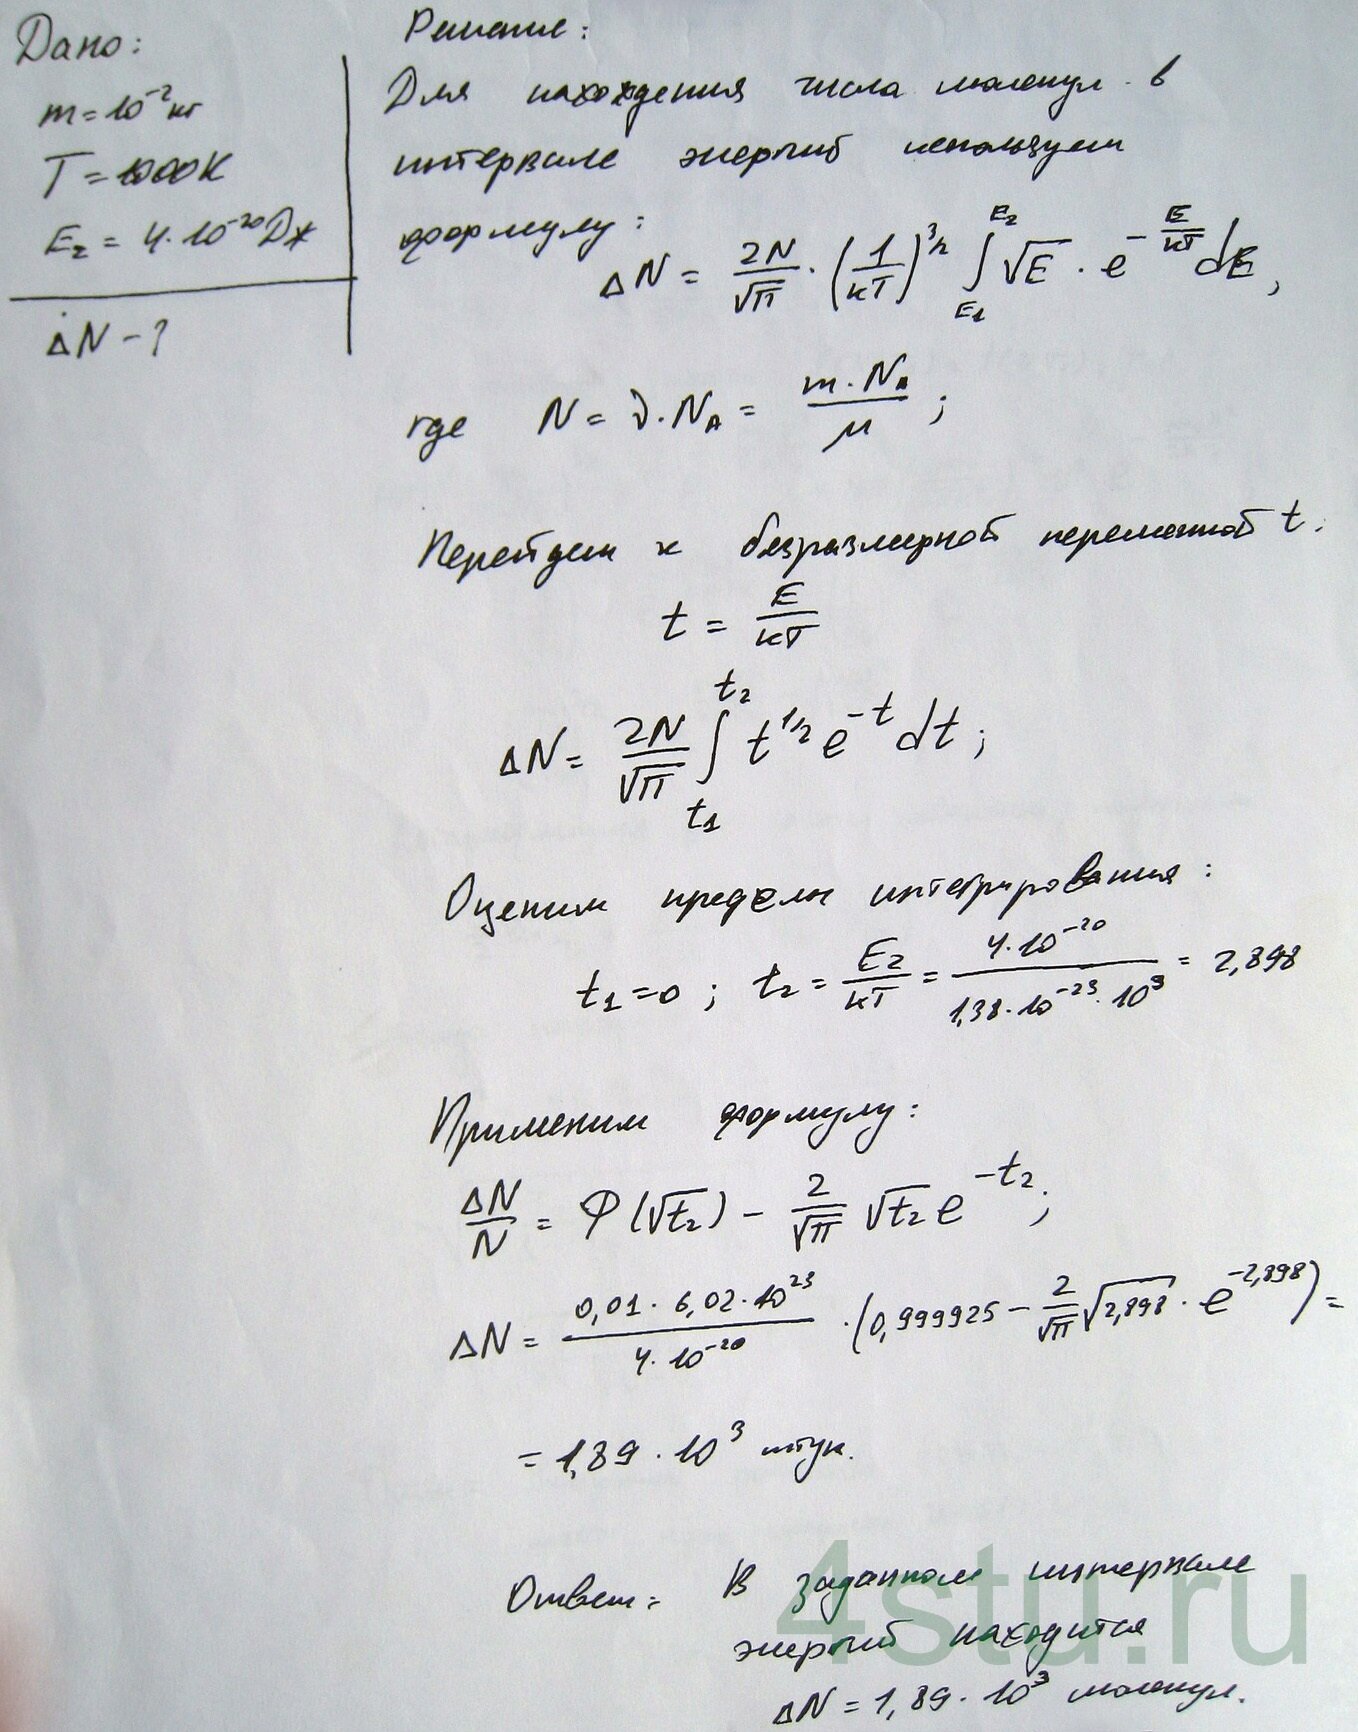 Дано:
m = 10⁻² кг
T = 1000K
E₂ = 4·10⁻²⁰ Дж
ΔN - ?
Решение:
Для нахождения числа молекул в
интервале энергий используем
формулу:
ΔN = 2N/√π · (1/кТ)^3/2 ∫_E₁^E₂ √E · e^(-E/кТ) dE,
где N = ν·N_A = m·N_A/μ ;
Перейдем к безразмерной переменной t.
t = E/кТ
ΔN = 2N/√π ∫_t₁^t₂ t^1/2 e^-t dt ;
Оценим пределы интегрирования:
t₁=0 ; t₂ = E₂/кТ = 4·10⁻²⁰/1,38·10⁻²³·10³ = 2,898
Применим формулу:
ΔN/N = Φ(√t₂) - 2/√π √t₂ e^-t₂ ;
ΔN = 0,01 · 6,02·10²³/4·10⁻²⁰ · (0,999925 - 2/√π √2,898 · e^-2,898) =
= 1,89 · 10³ штук.
Ответ: В заданном интервале
энергий находится
ΔN = 1,89·10³ молекул.
4stu.ru